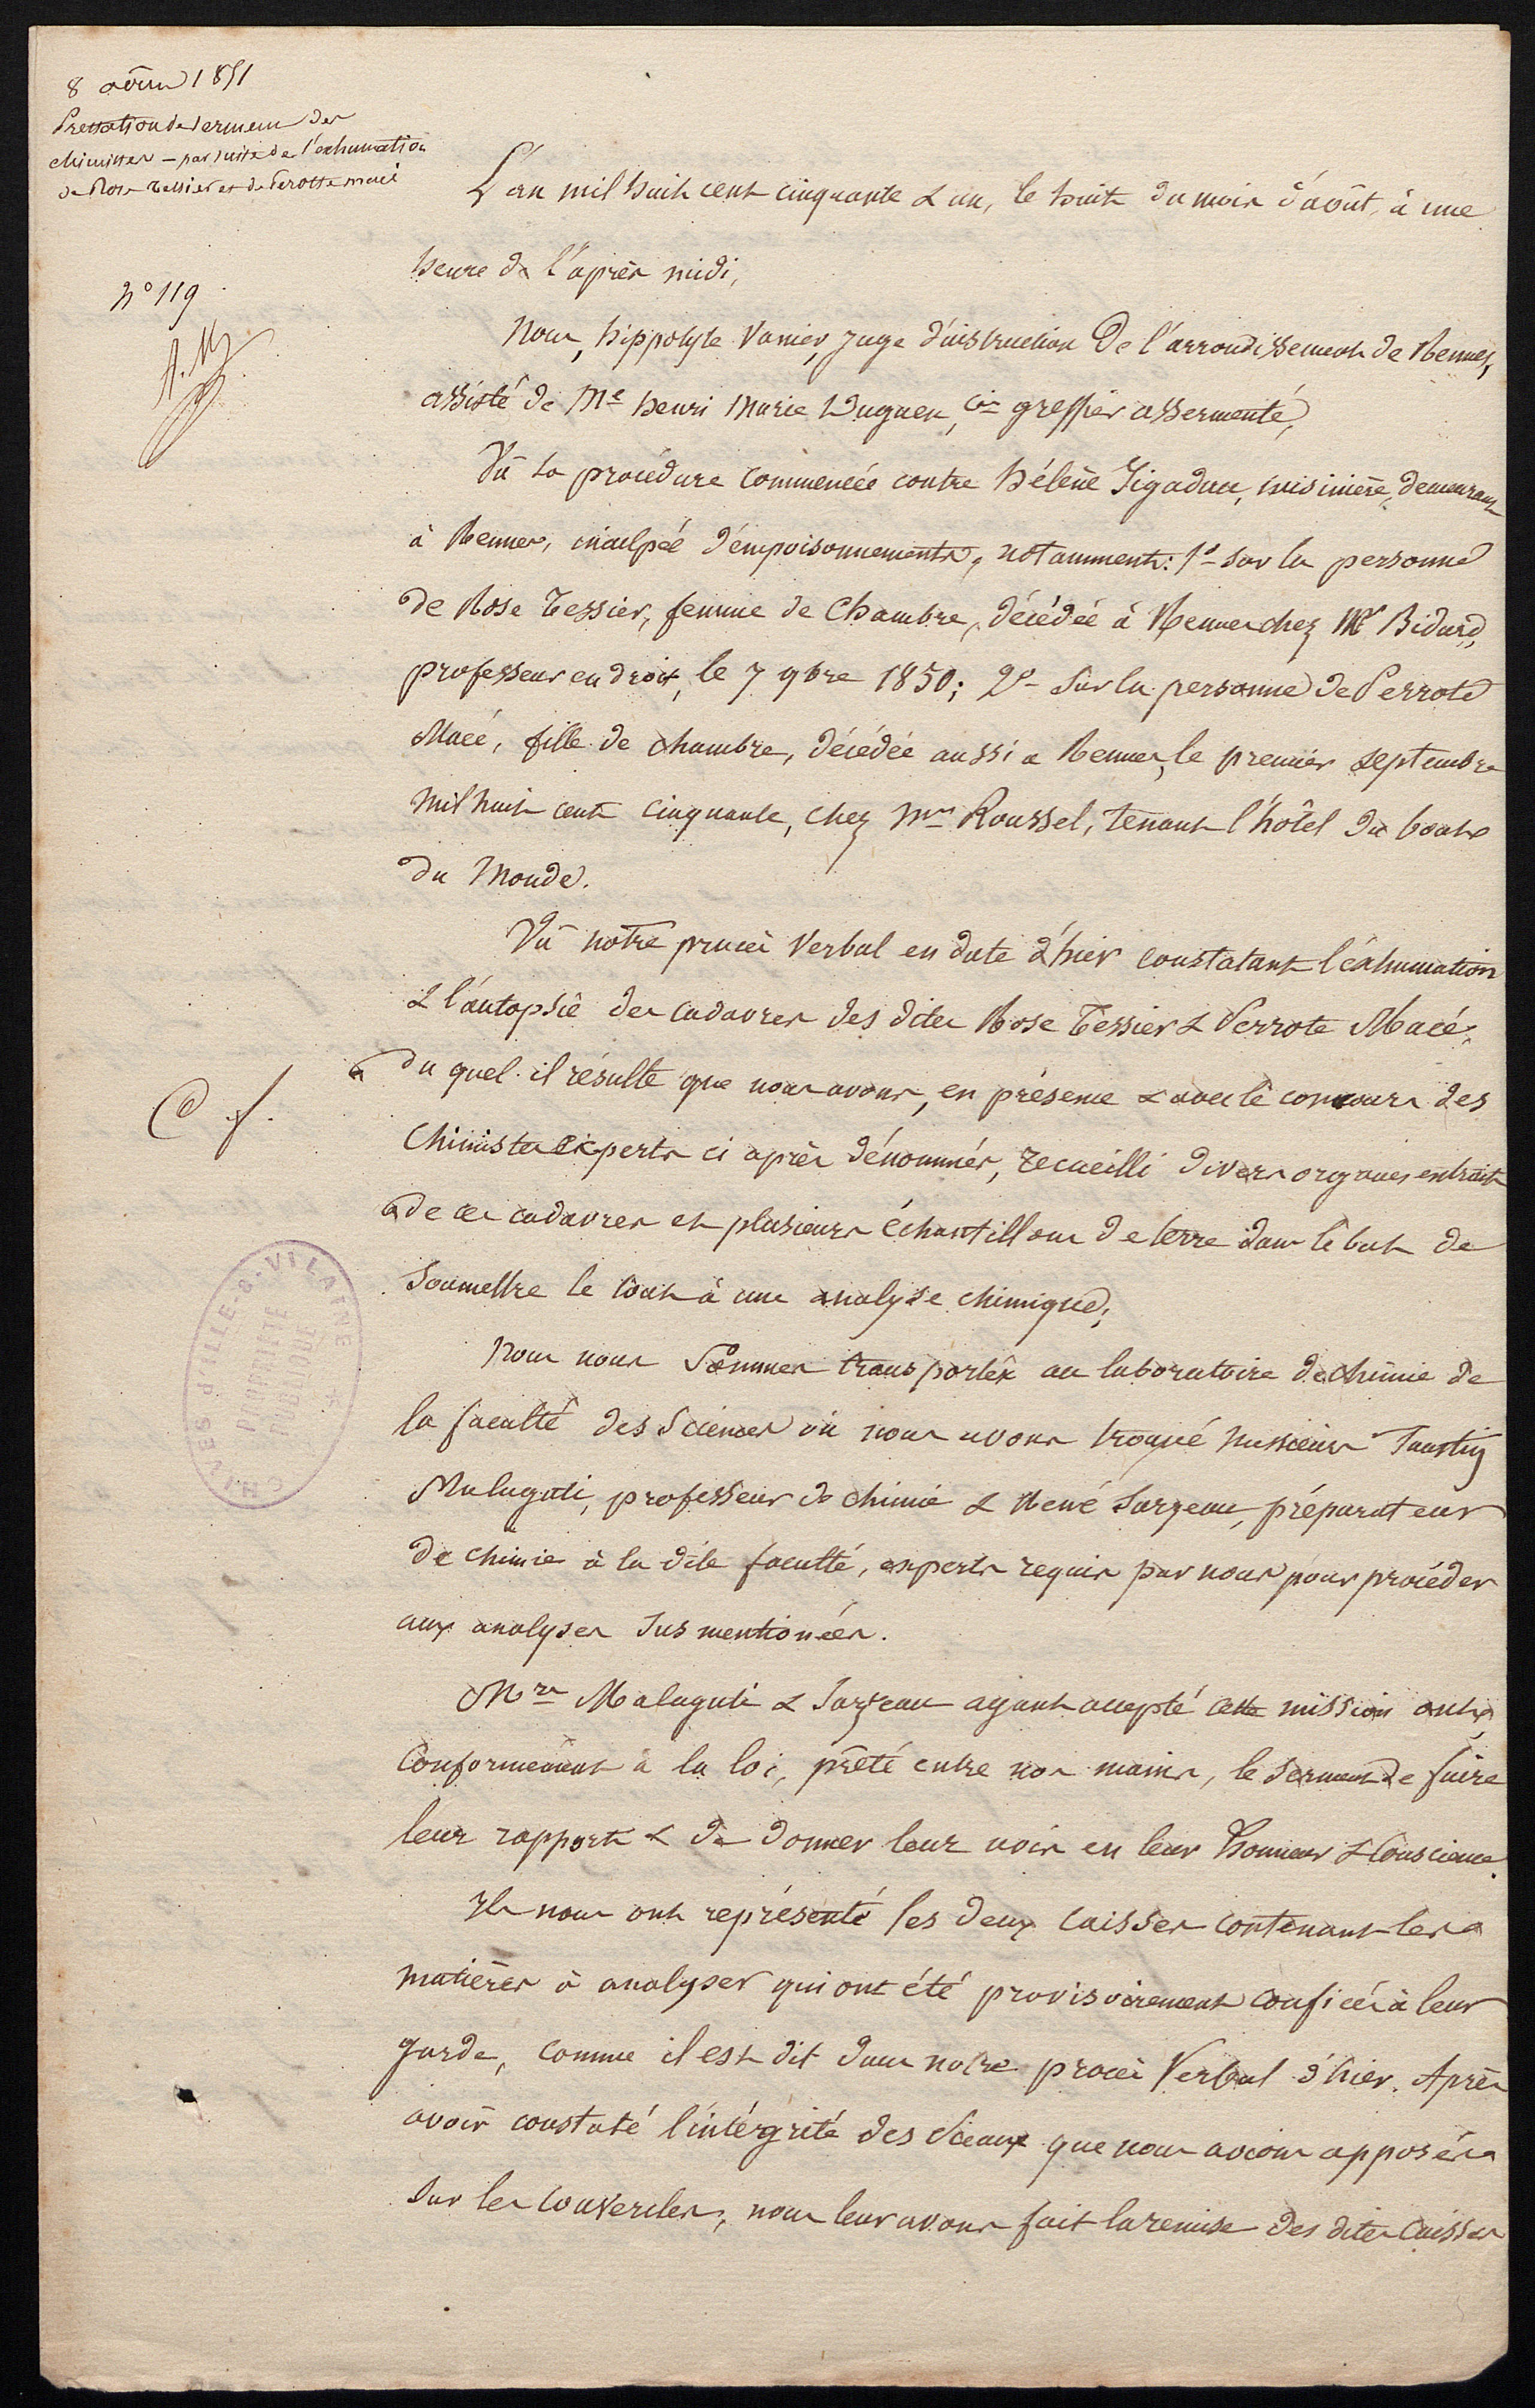 8 août 1851
Prestation de serment des
chimistes – par suite de l'exhumation
de Rose Tessier et de Perotte macé
N° 119
L'an mil huit cent cinquante & un, le huit du mois d'août, à une
heure de l'après midi,
Nous, hippolyte Vanier, Juge d'instruction De l'arrondissement de Rennes,
assisté de Me henri Marie Duguen, cis greffier assermenté,
Vû la procédure commencée contre hélène Jégadeu, cuisinière, demeurant
à Rennes, inculpée d'empoisonnements, notamment: 1°- sur la personne
de Rose Tessier, femme de Chambre, décédée à Rennes chez Mr Bidard,
professeur en droit, le 7 9bre 1850; 2°- Sur la personne de Perrote
Macé, fille de chambre, décédée aussi a Rennes, le premier septembre
mil huit cent cinquante, chez Mr Roussel, tenant l'hôtel du bout
du Monde.
Vû notre procès Verbal en date d'hier constatant l'éxhumation
& l'autopsie des cadavres des dites Rose Tessier & Perrote Macé,
du quel il résulte que nous avons, en présence & avec le concours des
Chimistes Experts ci après dénommés, recueilli divers organes extraits
de ces cadavres et plusieurs échantillons de terre dans le but de
soumettre le tout à une analyse chimique;
Nous nous Sommes transportés au laboratoire de chimie de
la faculté des Sciences où nous avons trouvé messieurs Faustin
Malaguti, professeur de chimie & René Sarzeau, préparateur
de chimie à la dite faculté, experts requis par nous pour procéder
aux analyses sus mentionées.
Mrs Malaguti & Sarzeau ayant accepté cette mission ont,
Conformément à la loi, prêté entre nos mains, le serment de faire
leur rapport & de donner leur avis en leur honneur & Conscience.
Ils nous ont représenté les deux caisses contenant les
matières à analyser qui ont été provisoirement confiées à leur
garde, comme il est dit dans notre procès Verbal d'hier. Après
avoir constaté l'intégrité des Sceaux que nous avions apposés
sur les couvercles, nous leur avons fait la remise des dites Caisses
C f.
CHIVES D'ILLE-&-VILAINE
PROPRIÉTÉ
PUBLIQUE